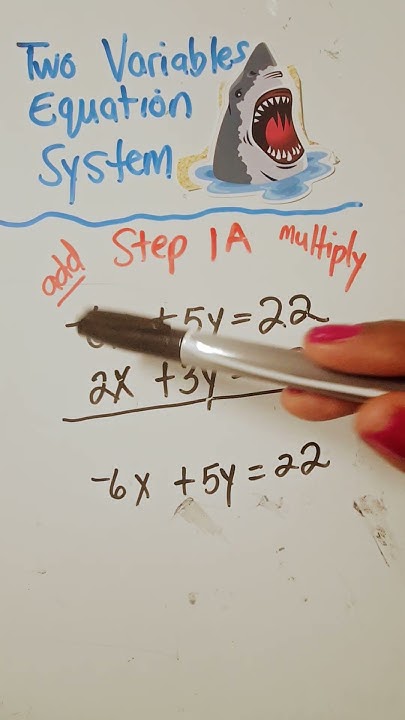 Two Variables
Equation
System
add Step 1A multiply
+5y=22
2x +3y
-6x +5y=22